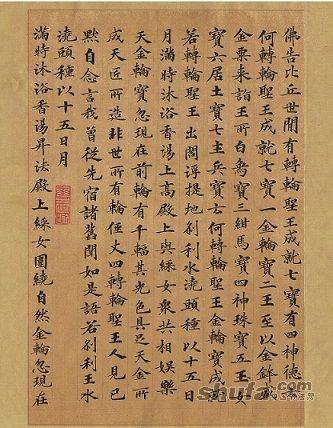 佛告比丘世間有轉輪聖王成就七寶有四神德云
何轉輪聖王成就七寶一金輪寶二王至以金鉢盛
金粟來詣王所白象寶三紺馬寶四神珠寶五玉女
寶六居士寶七主兵寶云何轉輪聖王金輪寶成就
若轉輪聖王出閻浮提地刹利水澆頭種以十五日
月滿時沐浴香湯上高殿上與婇女眾共相娛樂
天金輪寶忽現在前輪有千輻其光色具足天金所
成天匠所造非世所有輪徑丈四轉輪聖王人見已
默自念言我曾從先宿諸舊聞如是語若刹利王水
澆頭種以十五日月
滿時沐浴香湯昇法殿上婇女圍繞自然金輪忽現在
shufa.com